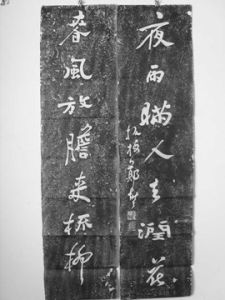 春風放膽來梳柳
夜雨瞞人去潤花
板橋鄭燮